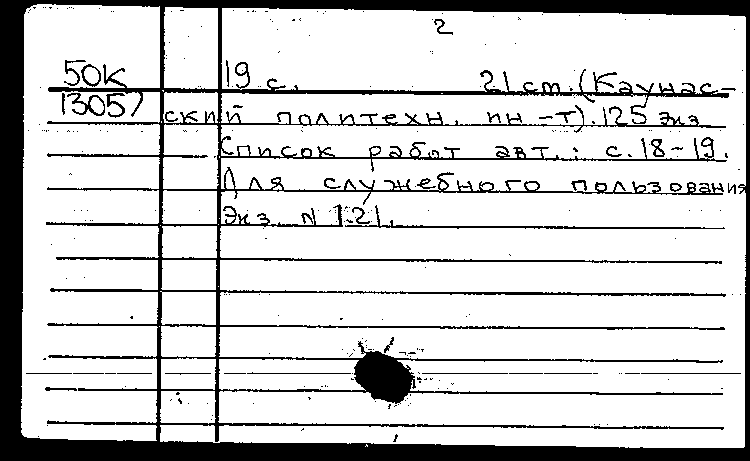 2
50К 19 с. 21 см. (Каунас-
13057 ский политехн. ин-т). 125 экз
Список работ авт.: с. 18-19.
Для служебного пользования
Экз. N 121.